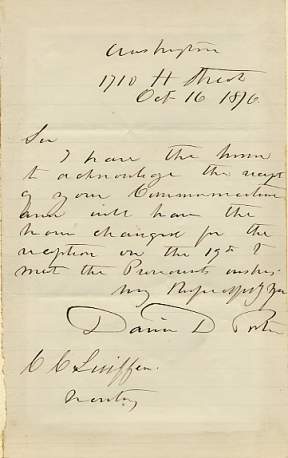 Washington
1710 H Street
Oct 16 1876
Sir
I have the honor
to acknowledge the receipt
of your Communication
and will have the
hour changed for the
reception on the 19th to
meet the wishes.
Very Respectfully
David D Porter
C C